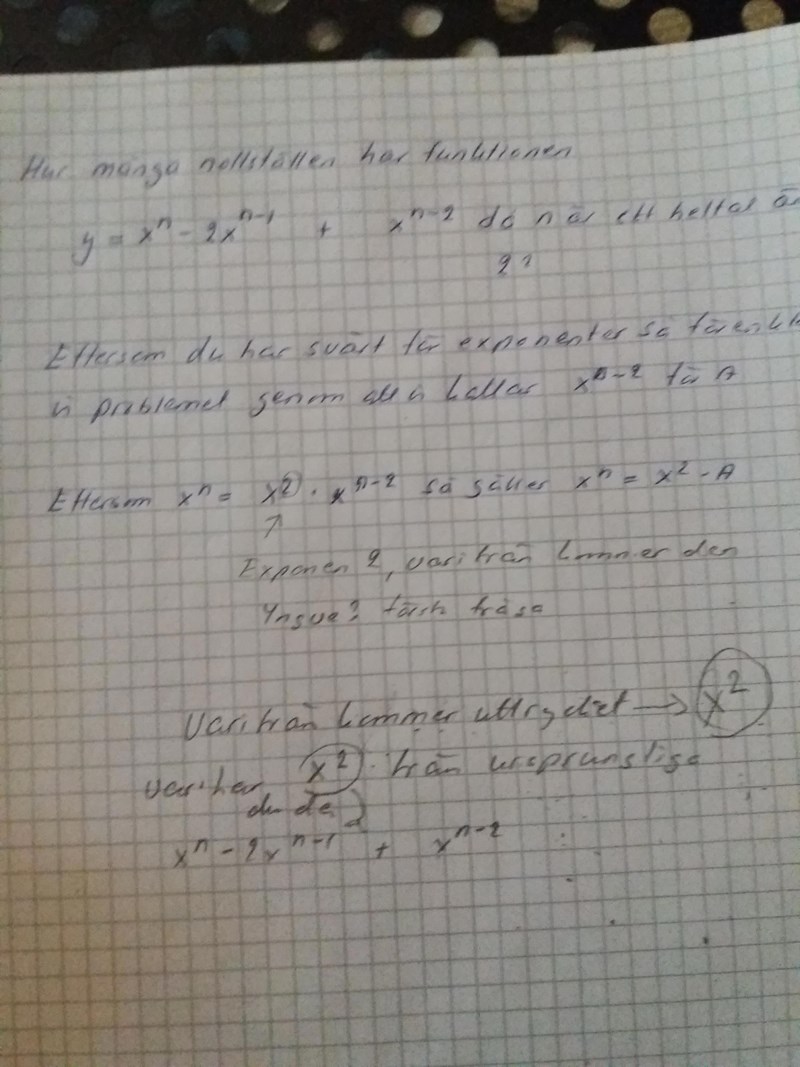 Hur många nollställen har funktionen
y = xⁿ - 2xⁿ⁻¹ + xⁿ⁻² då n är ett heltal är
2?
Eftersom du har svårt för exponenter så förenkl
vi problemet genom att vi kallar xⁿ⁻² för A
Eftersom xⁿ = x² · xⁿ⁻² så gäller xⁿ = x² · A
↑
Exponen 2, varifrån kommer den
Yngve? färsk fråga
Varifrån kommer uttrycket → x²
vari har x² från ursprungliga
du de
xⁿ - 2xⁿ⁻¹ + xⁿ⁻²